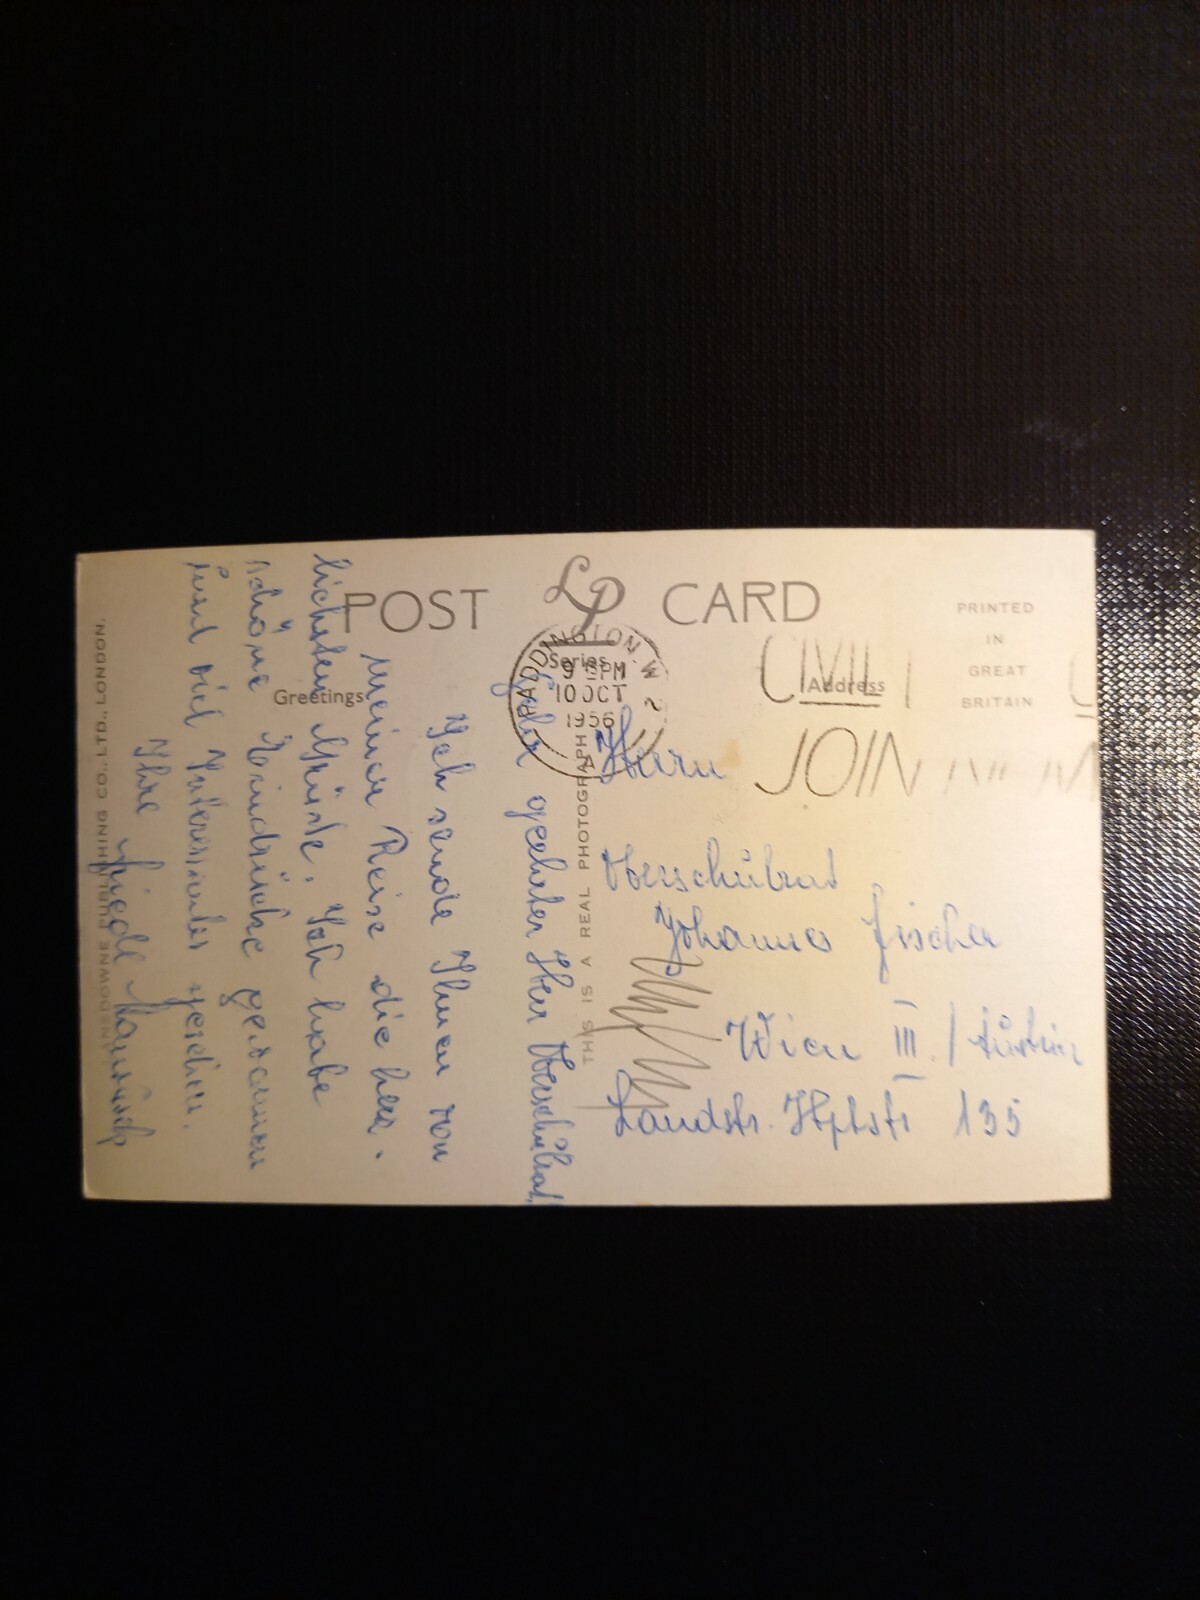 POST LP CARD
Series
Greetings
Address
PRINTED
IN
GREAT
BRITAIN
PADDINGTON W 2
9 15PM
10 OCT
1956
CIVIL
JOIN
THIS IS A REAL PHOTOGRAPH
LANSDOWNE PUBLISHING CO., LTD., LONDON.
Sehr geehrter Herr Oberschulrat,
Ich sende Ihnen von
meiner Reise die herz-
lichsten Grüße. Ich habe
schöne Eindrücke gewonnen
und viel Interessantes gesehen.
Ihre Friedl
Herrn
Oberschulrat
Johannes Fischer
Wien III. / Austria
Landstr. Hptstr 135